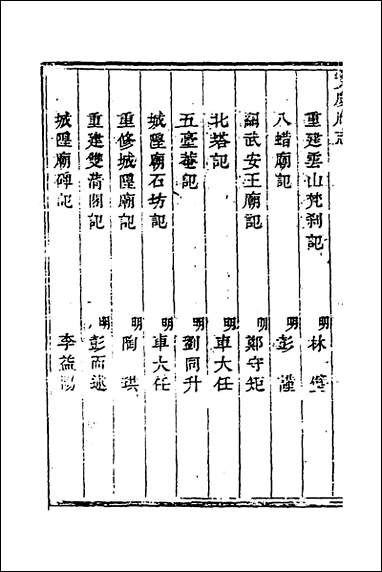 重建雲山梵刹記 明 林俊
八蜡廟記 明 彭謹
關武安王廟記 明 鄭守矩
北塔記 明 車大任
五臺菴記 明 劉同升
城隍廟石坊記 明 車大任
重修城隍廟記 明 陶珙
重建雙清閣記 明 彭而述
城隍廟碑記 李益陽